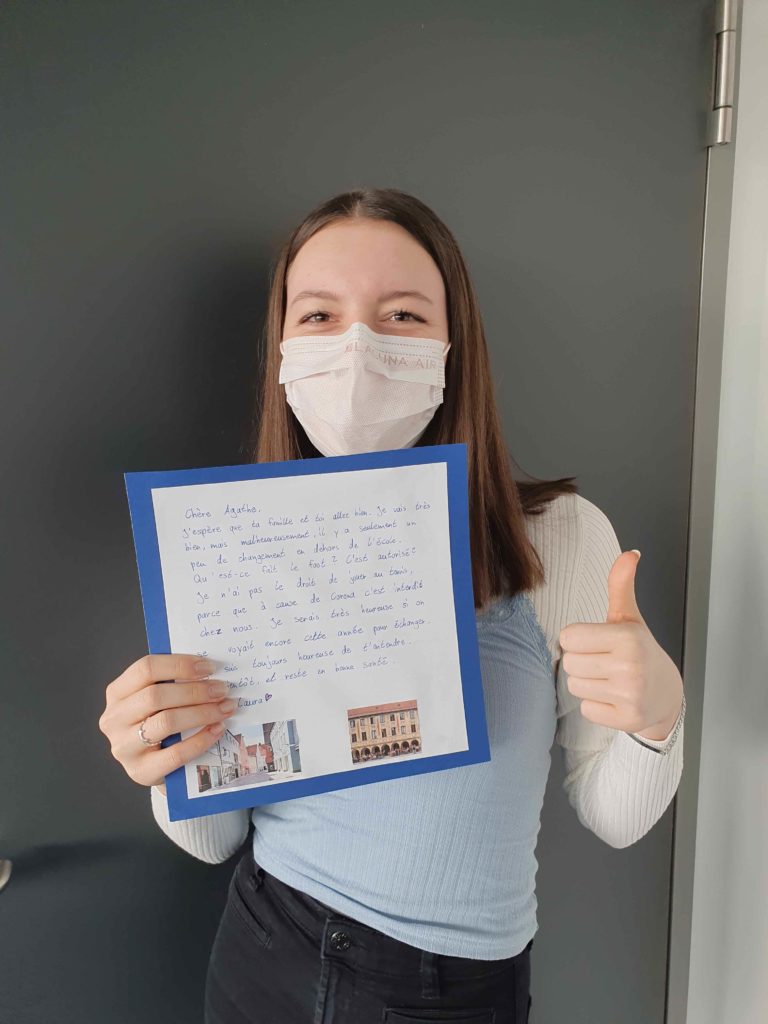 AIR
Chère Agathe,
J'espère que ta famille et toi allez bien. Je vais très
bien, mais malheureusement, il y a seulement un
peu de changement en dehors de l'école.
Qu'est-ce fait le foot? C'est autorisé?
Je n'ai pas le droit de jouer au tennis,
parce que à cause de Corona c'est interdit
chez nous. Je serais très heureuse si on
se voyait encore cette année pour échanger.
suis toujours heureuse de t'entendre.
et reste en bonne santé.
Laura